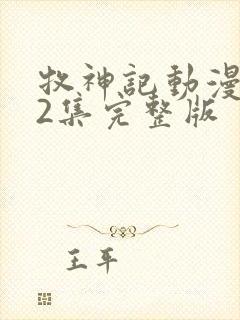 牧神記動漫
2集完整版
王平